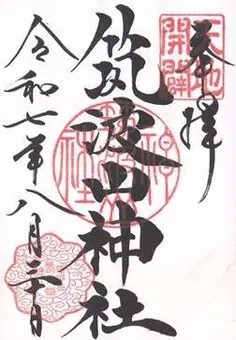 奉拝
天地開闢
筑波山神社
令和七年八月三十日